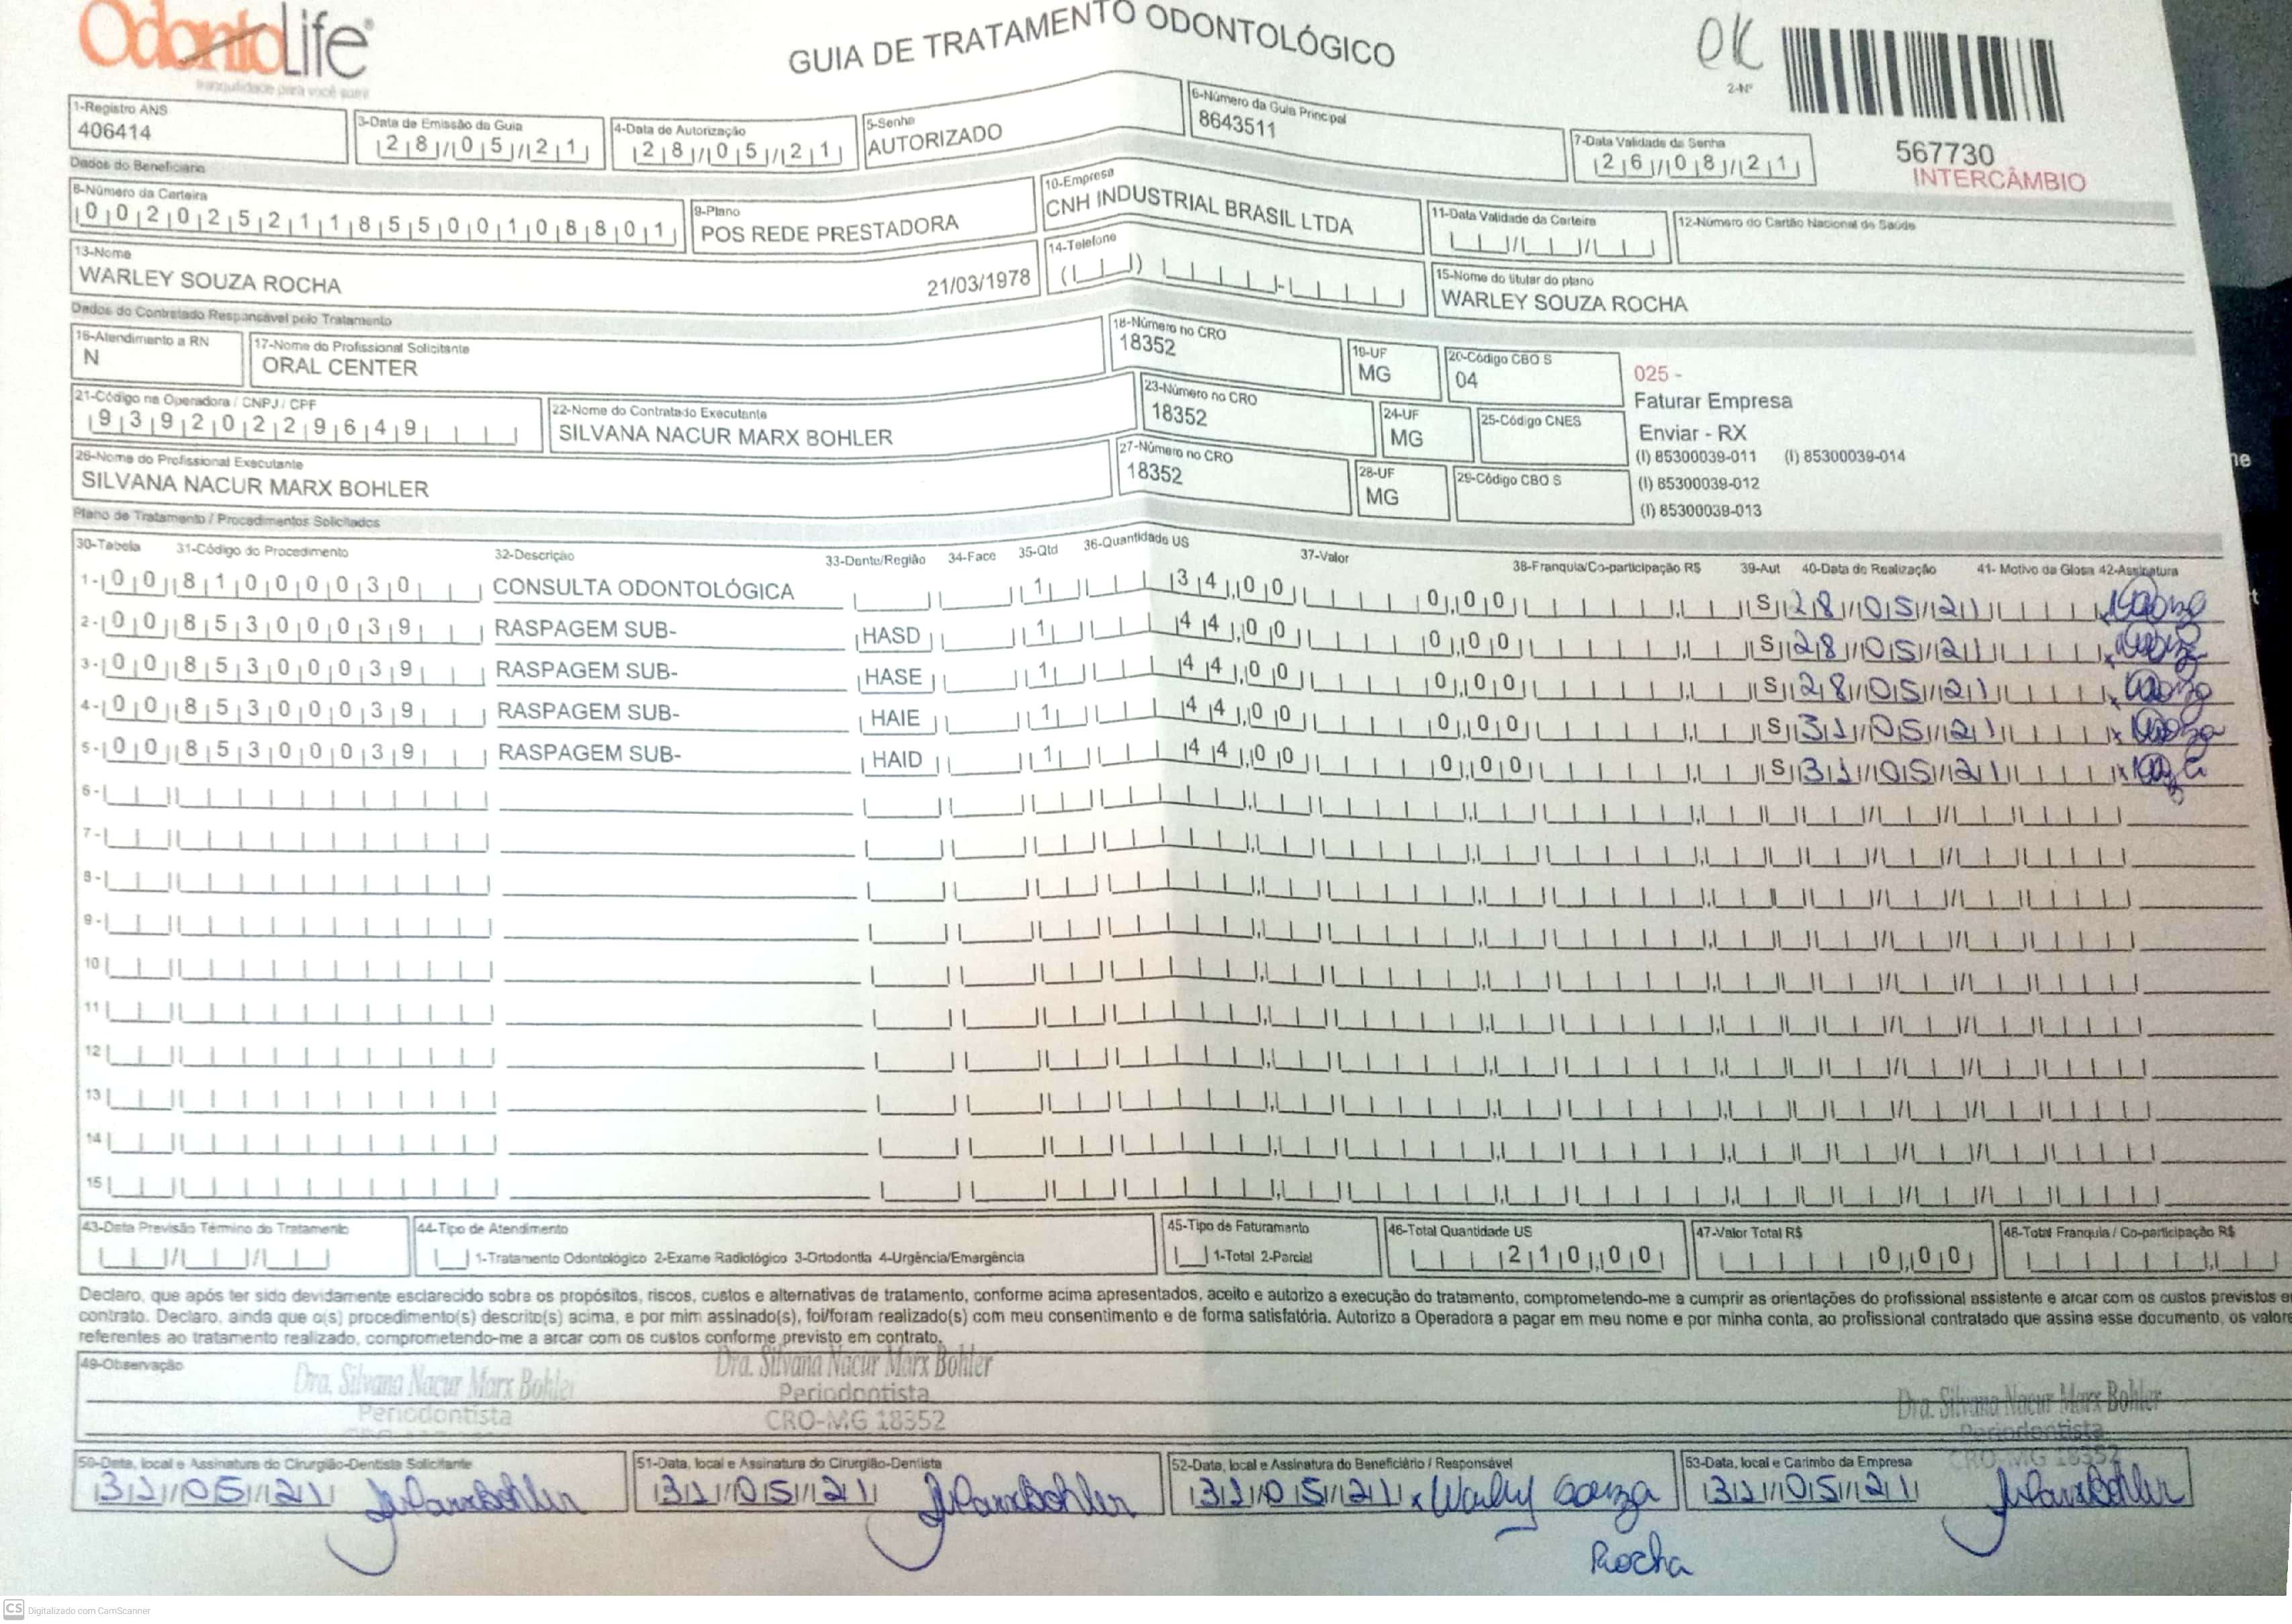 OdontoLife®
tranquilidade para você sorrir
GUIA DE TRATAMENTO ODONTOLÓGICO
OK
2-Nº
567730
INTERCÂMBIO
1-Registro ANS
406414
3-Data de Emissão da Guia
28/05/21
4-Data de Autorização
28/05/21
5-Senha
AUTORIZADO
6-Número da Guia Principal
8643511
7-Data Validade da Senha
26/08/21
Dados do Beneficiário
8-Número da Carteira
00202521185500108801
9-Plano
POS REDE PRESTADORA
10-Empresa
CNH INDUSTRIAL BRASIL LTDA
11-Data Validade da Carteira
12-Número do Cartão Nacional de Saúde
13-Nome
WARLEY SOUZA ROCHA 21/03/1978
14-Telefone
15-Nome do titular do plano
WARLEY SOUZA ROCHA
Dados do Contratado Responsável pelo Tratamento
16-Atendimento a RN
N
17-Nome do Profissional Solicitante
ORAL CENTER
18-Número no CRO
18352
19-UF
MG
20-Código CBO S
04
21-Código na Operadora / CNPJ / CPF
93920229649
22-Nome do Contratado Executante
SILVANA NACUR MARX BOHLER
23-Número no CRO
18352
24-UF
MG
25-Código CNES
26-Nome do Profissional Executante
SILVANA NACUR MARX BOHLER
27-Número no CRO
18352
28-UF
MG
29-Código CBO S
025 -
Faturar Empresa
Enviar - RX
(I) 85300039-011 (I) 85300039-014
(I) 85300039-012
(I) 85300039-013
Plano de Tratamento / Procedimentos Solicitados
30-Tabela 31-Código do Procedimento 32-Descrição 33-Dente/Região 34-Face 35-Qtd 36-Quantidade US 37-Valor 38-Franquia/Co-participação R$ 39-Aut 40-Data de Realização 41- Motivo da Glosa 42-Assinatura
1- 00 81000030 CONSULTA ODONTOLÓGICA 1 34,00 0,00 S 28/05/21
2- 00 85300039 RASPAGEM SUB- HASD 1 44,00 0,00 S 28/05/21
3- 00 85300039 RASPAGEM SUB- HASE 1 44,00 0,00 S 28/05/21
4- 00 85300039 RASPAGEM SUB- HAIE 1 44,00 0,00 S 31/05/21
5- 00 85300039 RASPAGEM SUB- HAID 1 44,00 0,00 S 31/05/21
6-
7-
8-
9-
10
11
12
13
14
15
43-Data Previsão Término do Tratamento
44-Tipo de Atendimento
1-Tratamento Odontológico 2-Exame Radiológico 3-Ortodontia 4-Urgência/Emergência
45-Tipo de Faturamento
1-Total 2-Parcial
46-Total Quantidade US
210,00
47-Valor Total R$
0,00
48-Total Franquia / Co-participação R$
Declaro, que após ter sido devidamente esclarecido sobre os propósitos, riscos, custos e alternativas de tratamento, conforme acima apresentados, aceito e autorizo a execução do tratamento, comprometendo-me a cumprir as orientações do profissional assistente e arcar com os custos previstos e
contrato. Declaro, ainda que o(s) procedimento(s) descrito(s) acima, e por mim assinado(s), foi/foram realizado(s) com meu consentimento e de forma satisfatória. Autorizo a Operadora a pagar em meu nome e por minha conta, ao profissional contratado que assina esse documento, os valore
referentes ao tratamento realizado, comprometendo-me a arcar com os custos conforme previsto em contrato.
49-Observação
Dra. Silvana Nacur Marx Bohler
Periodontista
Dra. Silvana Nacur Marx Bohler
Periodontista
CRO-MG 18352
Dra. Silvana Nacur Marx Bohler
Periodontista
CRO-MG 18352
50-Data, local e Assinatura do Cirurgião-Dentista Solicitante
31/05/21
51-Data, local e Assinatura do Cirurgião-Dentista
31/05/21
52-Data, local e Assinatura do Beneficiário / Responsável
31/05/21 x Warley Souza
Rocha
53-Data, local e Carimbo da Empresa
31/05/21
CS Digitalizado com CamScanner